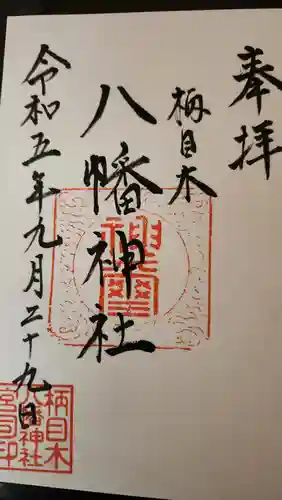 奉拝
柄目木
八幡神社
令和五年九月二十九日
柄目木
八幡神社
宮司印